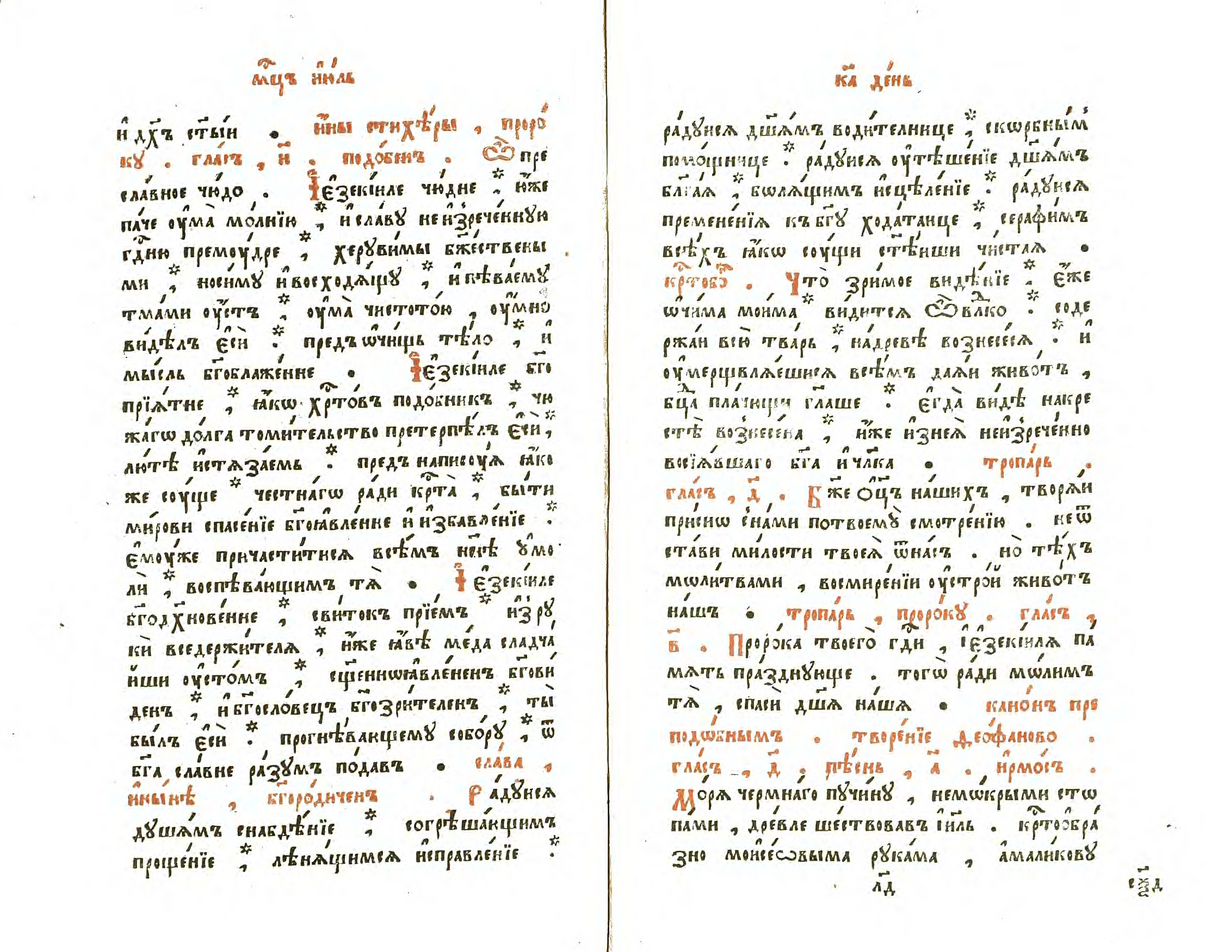 мц҃ъ і҆ю́ль
и҆ дх҃ъ ст҃ы́и . и҆́ны стихѣ́ры , проро́
ку . гла́съ , и҃ . подо́бенъ . Ѿ пре
сла́вное чю́до . І҆езекі́иле чю́дне , * и҆́же
па́че оу҆ма̀ мо́лнїю , * и҆ сла́ву неи҆зрече́нную
гдⷭ҇ню премоу́дре , * херуви́мы бж҃е́ствены
ми , * носи́му и҆ восходѧ́щу , * и҆ пѣва́ему
тма́ми оу҆́стъ , * оу҆ма̀ чистото́ю , оу҆́мно
ви́дѣлъ є҆сѝ . * предъ ѡ҆чи́щь тѣ́ло , * и҆
мы́сль бг҃облаже́нне . І҆езекі́иле бг҃о
прїѧ́тне , * ꙗ҆́кѡ хрⷭ҇то́въ подо́бникъ , * чю
жа́гѡ до́лга томи́тельство претерпѣ́лъ є҆сѝ , *
лю́тѣ и҆стѧза́емь . * предъ написоу́ѧ ꙗ҆́ко
же соу́ще * честна́гѡ ра́ди крⷭ҇та̀ , * бы́ти
ми́рови спасе́нїе бг҃оꙗвле́нне и҆ и҆збавле́нїе . *
є҆моу́же причасти́тисѧ всѣ́мъ нн҃ѣ ᲂу҆мо
лѝ , * воспѣва́ющимъ тѧ̀ . І҆езекі́иле
бг҃одхнове́нне , * сви́токъ прїе́мъ * и҆з ру
кѝ вседержи́телѧ , * и҆́же ꙗ҆́вѣ ме́да сладча́
йши оу҆сто́мъ , * сщ҃е́нноꙗвле́ненъ бг҃ови́
денъ , * и҆ бг҃осло́вецъ бг҃озри́теленъ , * ты̀
бы́лъ є҆сѝ . * прогнѣ́вавшему собо́ру , * ѿ
бг҃а сла́вне ра́зумъ пода́въ . сла́ва ,
и҆ ны́нѣ , бг҃оро́диченъ . Ра́дуисѧ
дꙋша́мъ снабдѣ́нїе * согрѣша́ющимъ
проще́нїе , * лѣнѧ́щимсѧ и҆справле́нїе . *
к҃а де́нь
ра́дуисѧ дш҃а́мъ води́телнице , * ско́рбнымъ
помо́щнице . * ра́дуисѧ оу҆тѣше́нїе дш҃а́мъ
бл҃га́ѧ , * болѧ́щимъ и҆сцѣле́нїе . * ра́дуисѧ
пременені́ѧ къ бг҃у хода́таице , * серафи́мъ
всѣ́хъ ꙗ҆́кѡ соу́щи ст҃ѣ́иши чи́стаѧ .
крⷭ҇тобо̑ . Что̀ зри́мое видѣ́нїе . * є҆́же
ѡ҆чи́ма мои́ма * ви́дитсѧ Ѽ влⷣко . * соде
ржа́и всю̀ тва́рь , * на дре́вѣ вознесе́сѧ . * и҆
оу҆мерщвлѧ́ешисѧ всѣ́мъ даѧ́и живо́тъ ,
бц҃а пла́чющи гл҃аше . * є҆гда̀ ви́дѣ на кре
стѣ̀ вознесе́на , * и҆́же и҆з неѧ̀ неи҆зрече́нно
возсїѧ́вшаго бг҃а и҆ чл҃ка . тропа́рь .
гла́съ , д҃ . Бж҃е Ѻ҆ц҃ъ на́шихъ , творѧ́и
при́снѡ с на́ми по твоему̀ смотре́нїю . не ѿ
ста́ви ми́лости твоеѧ̀ ѿ на́съ . но̀ тѣ́хъ
моли́твами , во смире́нїи оу҆стро́й живо́тъ
на́шъ . тропа́рь , проро́ку . гла́съ ,
в҃ . Проро́ка твоего̀ гдⷭ҇и , і҆езекі́илѧ па́
мѧть пра́зднующе . того̀ ра́ди мо́лимъ
тѧ̀ , спасѝ дш҃а на́ша . кано́нъ пре
подо́бнымъ . творе́нїе Ѳеофа́ново .
гла́съ , д҃ . пѣ́снь , а҃ . і҆рмо́съ .
Мо́рѧ чермна́го пучи́ну , немо́крыми сто
па́ми , дре́вле ше́ствовавъ і҆и҃ль . крⷭ҇тоо́бра
зно моисе́ѡвыма рука́ма , а҆мали́кову
л҃д